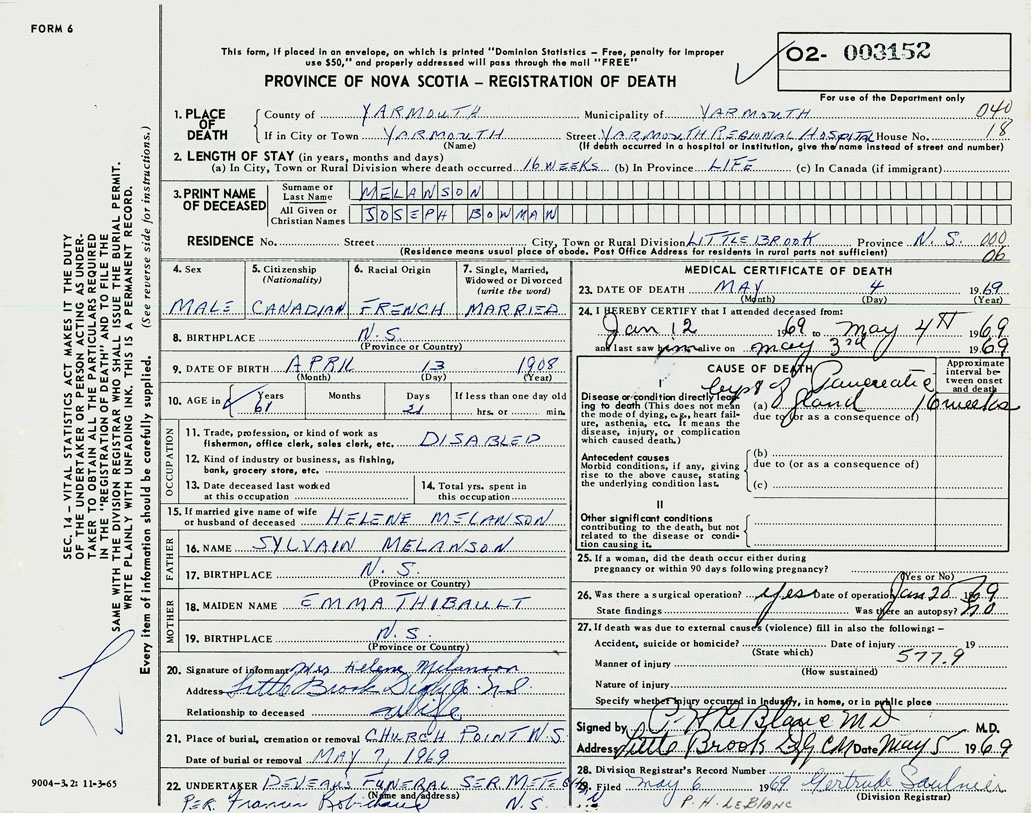 FORM 6
This form, if placed in an envelope, on which is printed "Dominion Statistics – Free, penalty for improper
use $50," and properly addressed will pass through the mail "FREE"
O2- 003152
For use of the Department only
PROVINCE OF NOVA SCOTIA – REGISTRATION OF DEATH
1. PLACE OF DEATH
County of YARMOUTH Municipality of YARMOUTH 040
If in City or Town YARMOUTH Street YARMOUTH REGIONAL HOSPITAL House No. 18
(Name) (If death occurred in a hospital or institution, give the name instead of street and number)
2. LENGTH OF STAY (in years, months and days)
(a) In City, Town or Rural Division where death occurred 16 WEEKS (b) In Province LIFE (c) In Canada (if immigrant)
3. PRINT NAME OF DECEASED
Surname or Last Name MELANSON
All Given or Christian Names JOSEPH BOWMAN
RESIDENCE No. Street City, Town or Rural Division LITTLE BROOK Province N.S. 000
(Residence means usual place of abode. Post Office Address for residents in rural parts not sufficient) 06
4. Sex MALE
5. Citizenship (Nationality) CANADIAN
6. Racial Origin FRENCH
7. Single, Married, Widowed or Divorced (write the word) MARRIED
8. BIRTHPLACE N.S.
(Province or Country)
9. DATE OF BIRTH APRIL 13 1908
(Month) (Day) (Year)
10. AGE in Years Months Days If less than one day old
61 21 hrs. or min.
OCCUPATION
11. Trade, profession, or kind of work as
fisherman, office clerk, sales clerk, etc. DISABLED
12. Kind of industry or business, as fishing,
bank, grocery store, etc.
13. Date deceased last worked
at this occupation
14. Total yrs. spent in
this occupation
15. If married give name of wife
or husband of deceased HELENE MELANSON
FATHER
16. NAME SYLVAIN MELANSON
17. BIRTHPLACE N.S.
(Province or Country)
MOTHER
18. MAIDEN NAME EMMA THIBAULT
19. BIRTHPLACE N.S.
(Province or Country)
20. Signature of informant Mrs. Helene Melanson
Address Little Brook Digby Co. N.S.
Relationship to deceased Wife
21. Place of burial, cremation or removal CHURCH POINT N.S.
Date of burial or removal MAY 7, 1969
22. UNDERTAKER DEVEAUS FUNERAL SER.
(Name and address)
PER. N.S.
MEDICAL CERTIFICATE OF DEATH
23. DATE OF DEATH MAY 4 1969
(Month) (Day) (Year)
24. I HEREBY CERTIFY that I attended deceased from:
Jan 12 1969 to May 4TH 1969
and last saw him alive on May 3rd 1969
CAUSE OF DEATH
Approximate interval between onset and death
I
Disease or condition directly leading to death (This does not mean
the mode of dying, e.g., heart failure, asthenia, etc. It means the
disease, injury, or complication
which caused death.)
(a) Cyst of Pancreatic gland 16 weeks
due to (or as a consequence of)
Antecedent causes
Morbid conditions, if any, giving
rise to the above cause, stating
the underlying condition last.
(b)
due to (or as a consequence of)
(c)
II
Other significant conditions
contributing to the death, but not
related to the disease or condition causing it.
25. If a woman, did the death occur either during
pregnancy or within 90 days following pregnancy?
(Yes or No)
26. Was there a surgical operation? yes Date of operation Jan 20 1969
State findings Was there an autopsy? no
27. If death was due to external causes (violence) fill in also the following: –
Accident, suicide or homicide? Date of injury 19
(State which) 577.9
Manner of injury
(How sustained)
Nature of injury
Specify whether injury occurred in industry, in home, or in public place
Signed by LeBlanc MD M.D.
Address Little Brook Dig Co Date May 5 1969
28. Division Registrar's Record Number
29. Filed May 6 1969 Gertrude Saulnier
P.H. LEBLANC (Division Registrar)
SEC. 14 – VITAL STATISTICS ACT MAKES IT THE DUTY
OF THE UNDERTAKER OR PERSON ACTING AS UNDER-
TAKER TO OBTAIN ALL THE PARTICULARS REQUIRED
IN THE "REGISTRATION OF DEATH" AND TO FILE THE
SAME WITH THE DIVISION REGISTRAR WHO SHALL ISSUE THE BURIAL PERMIT.
WRITE PLAINLY WITH UNFADING INK. THIS IS A PERMANENT RECORD.
Every item of information should be carefully supplied. (See reverse side for instructions.)
9004–3.2: 11-3-65